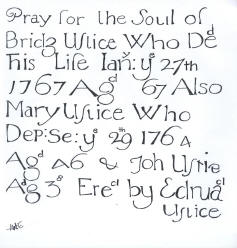 Pray for the Soul of
Bridg Uslice Who De^d
This Life Ian^y: y^e 27th
1767 Ag^d 67 Also
Mary Uslice Who
Dep: Se: y^e 29 176
Ag^d 46 & Joh
Ag^d 3 Ere^d by Edmd
Uslice